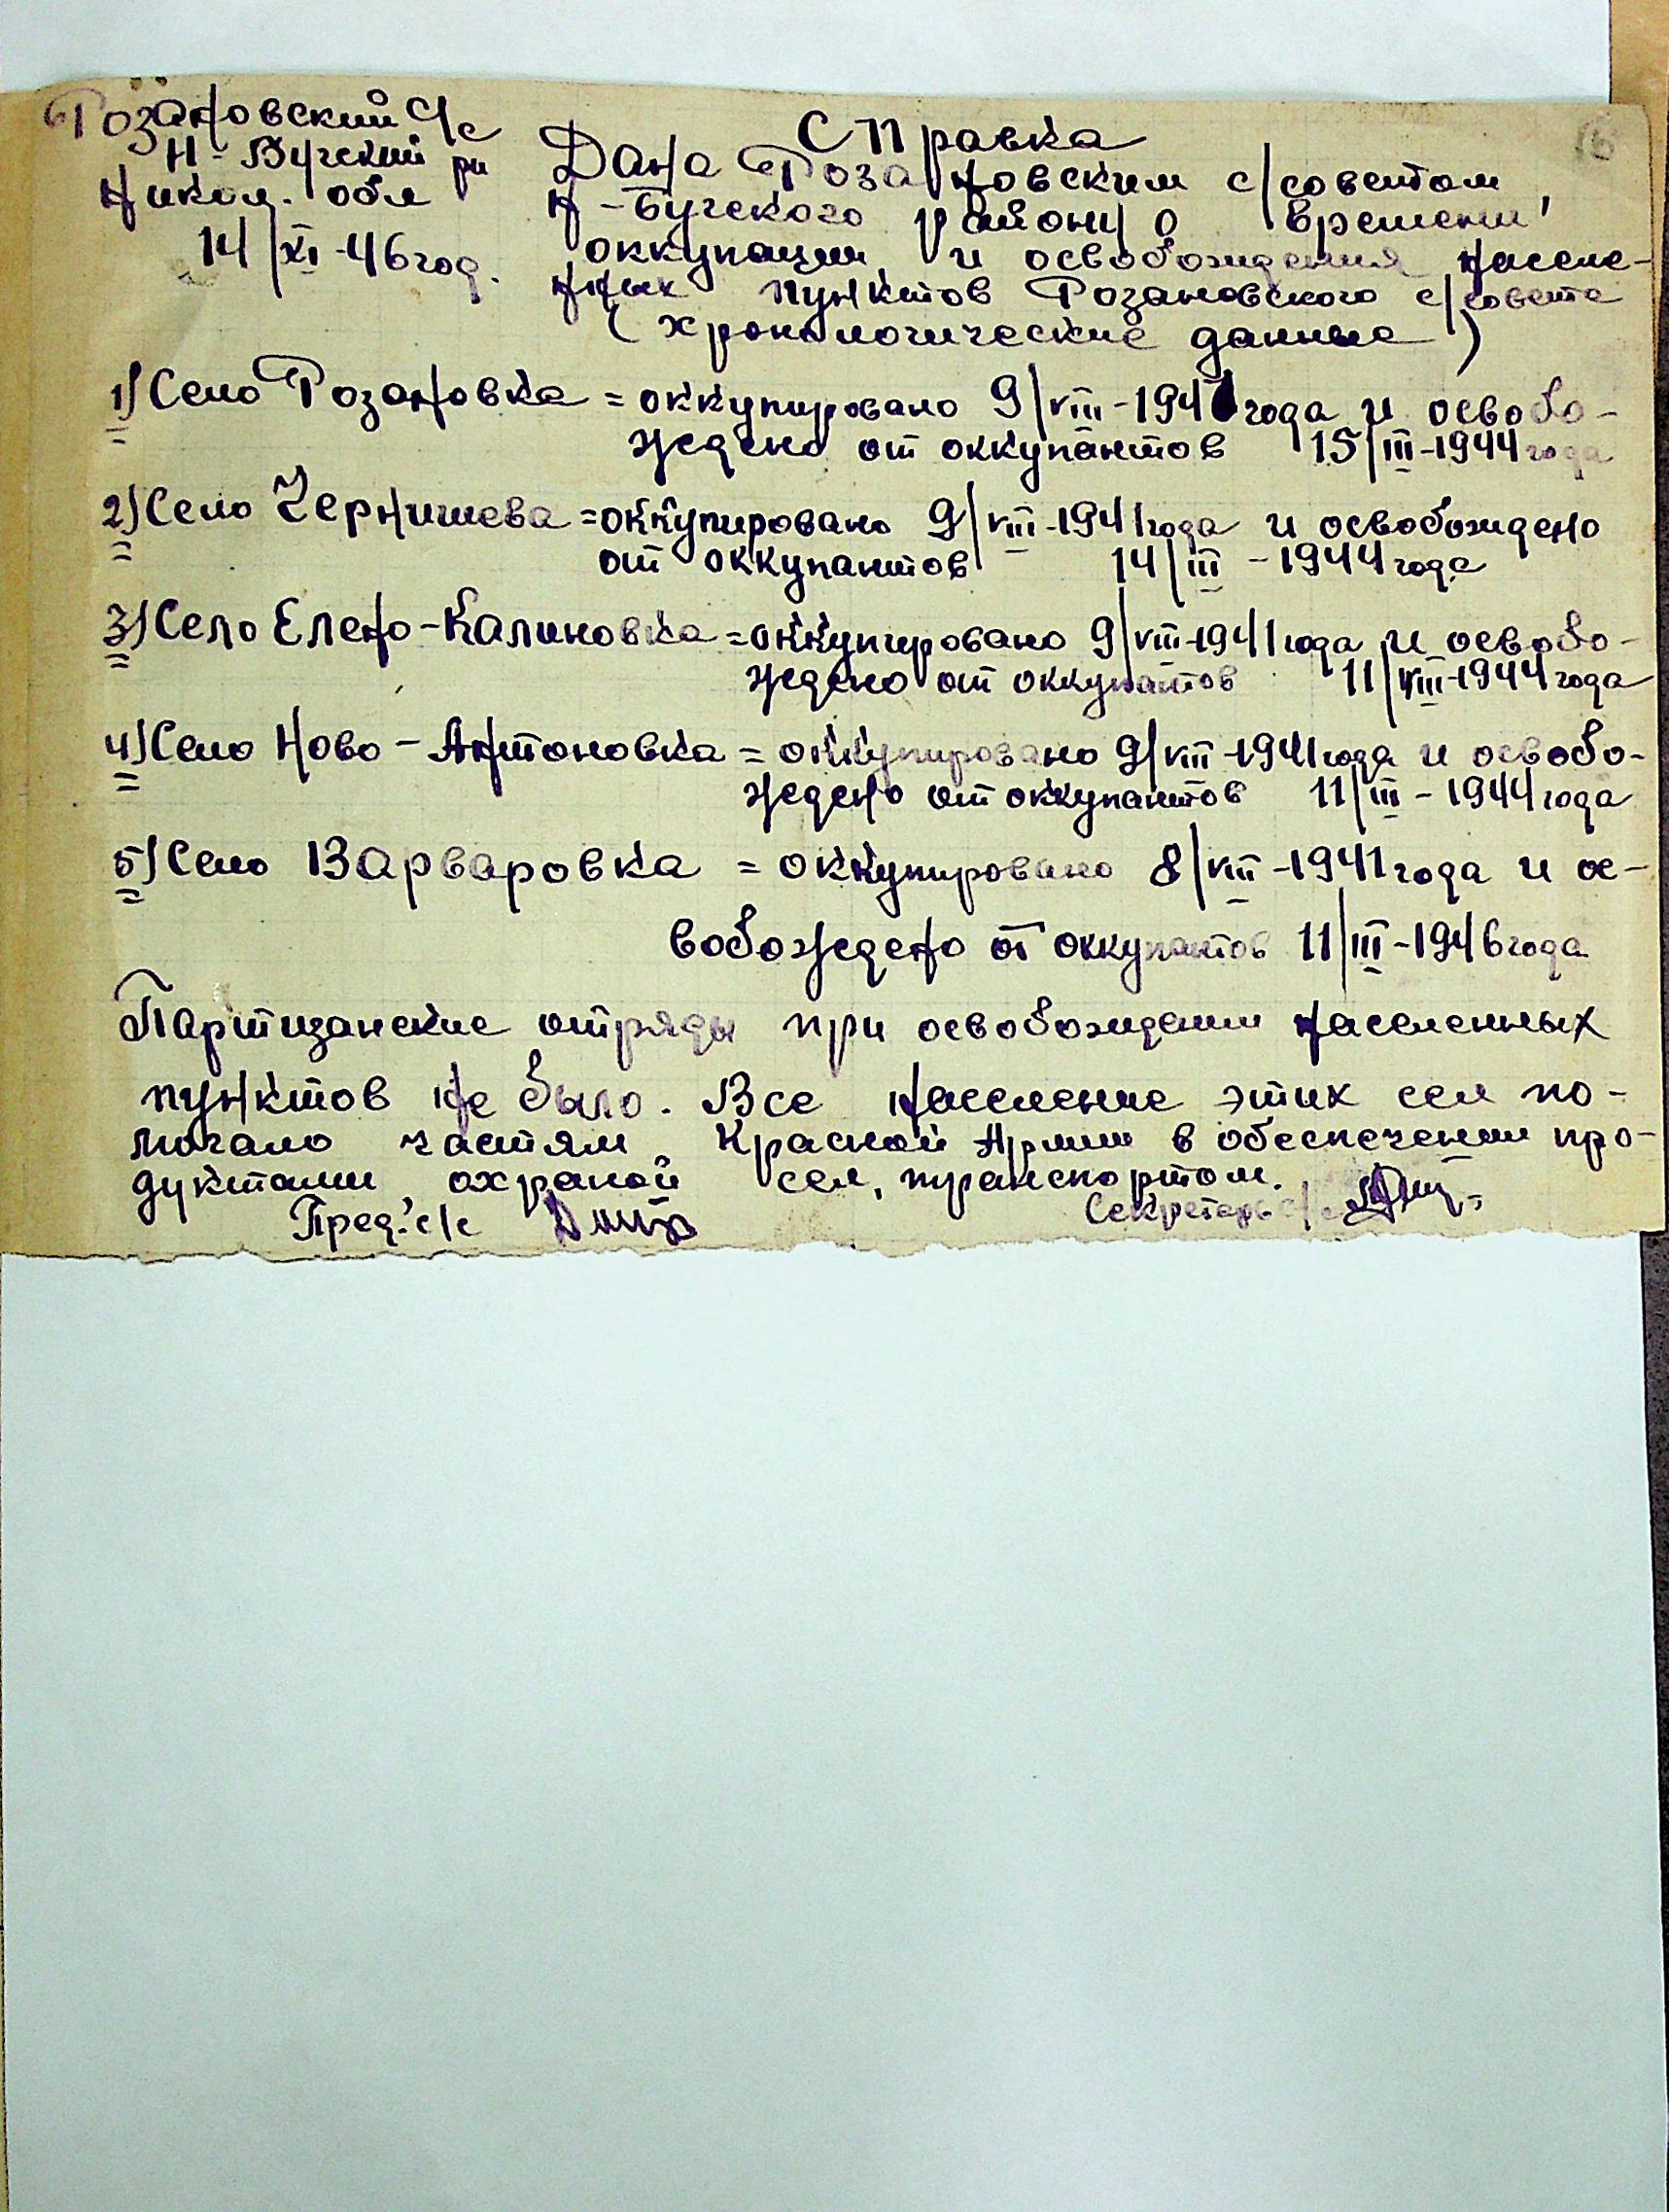 Розановский с/с
Н-Бугский р-н
Никол. обл
14/XI-46 год.
16
Справка
Дана Розановским с/советом
Н-Бугского району о времени
оккупации и освобождения населе-
нных пунктов Розановского с/совета
(хронологические данные)
1) Село Розановка = оккупировано 9/VIII-1941 года и освобо-
ждено от оккупантов 15/III-1944 года
2) Село Чернишева = оккупировано 9/VIII-1941 года и освобождено
от оккупантов 14/III-1944 года
3) Село Елено-Калиновка = оккупировано 9/VIII-1941 года и освобо-
ждено от оккупантов 11/VIII-1944 года
4) Село Ново-Антоновка = оккупировано 9/VIII-1941 года и освобо-
ждено от оккупантов 11/III-1944 года
5) Село Варваровка = оккупировано 8/VIII-1941 года и ос-
вобождено от оккупантов 11/III-1946 года
Партизанские отряды при освобождении населенных
пунктов не было. Все население этих сел по-
могало частям Красной Армии в обеспечении про-
дуктами, охраной сел, транспортом.
Пред. с/с
Секретарь с/с